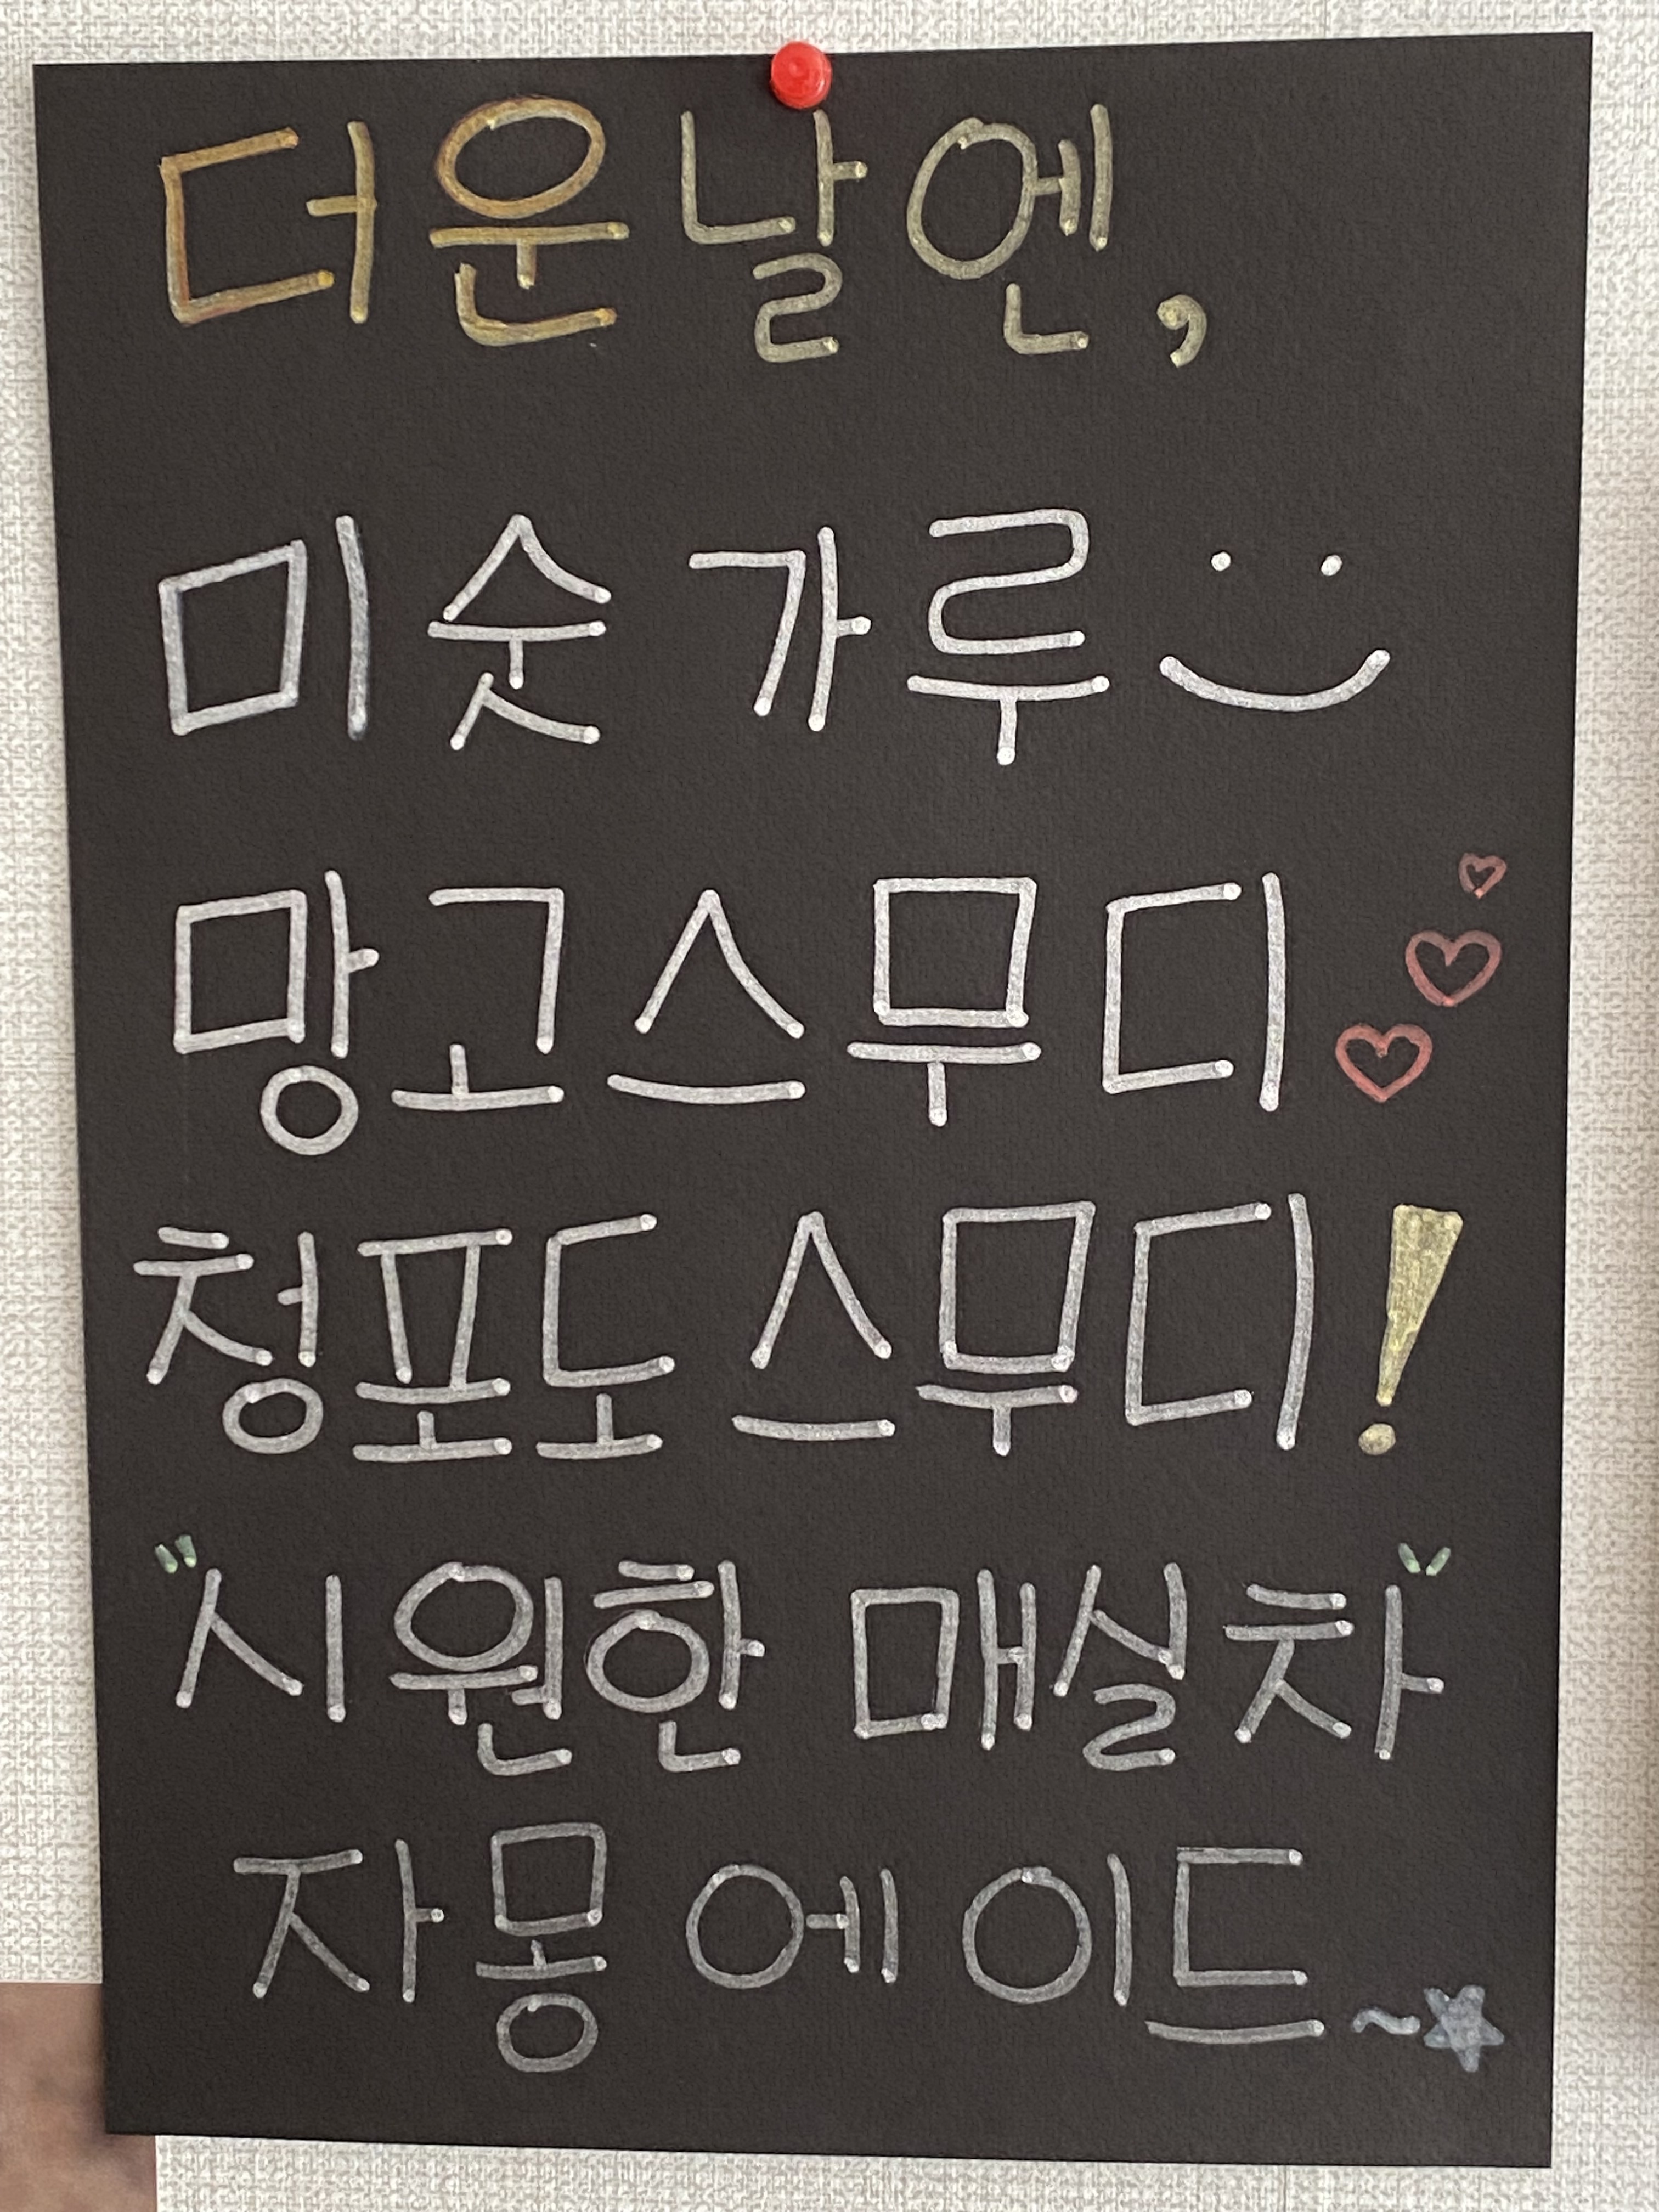 더운날엔,
미숫가루
망고스무디
청포도 스무디!
"시원한 매실차"
자몽에이드~